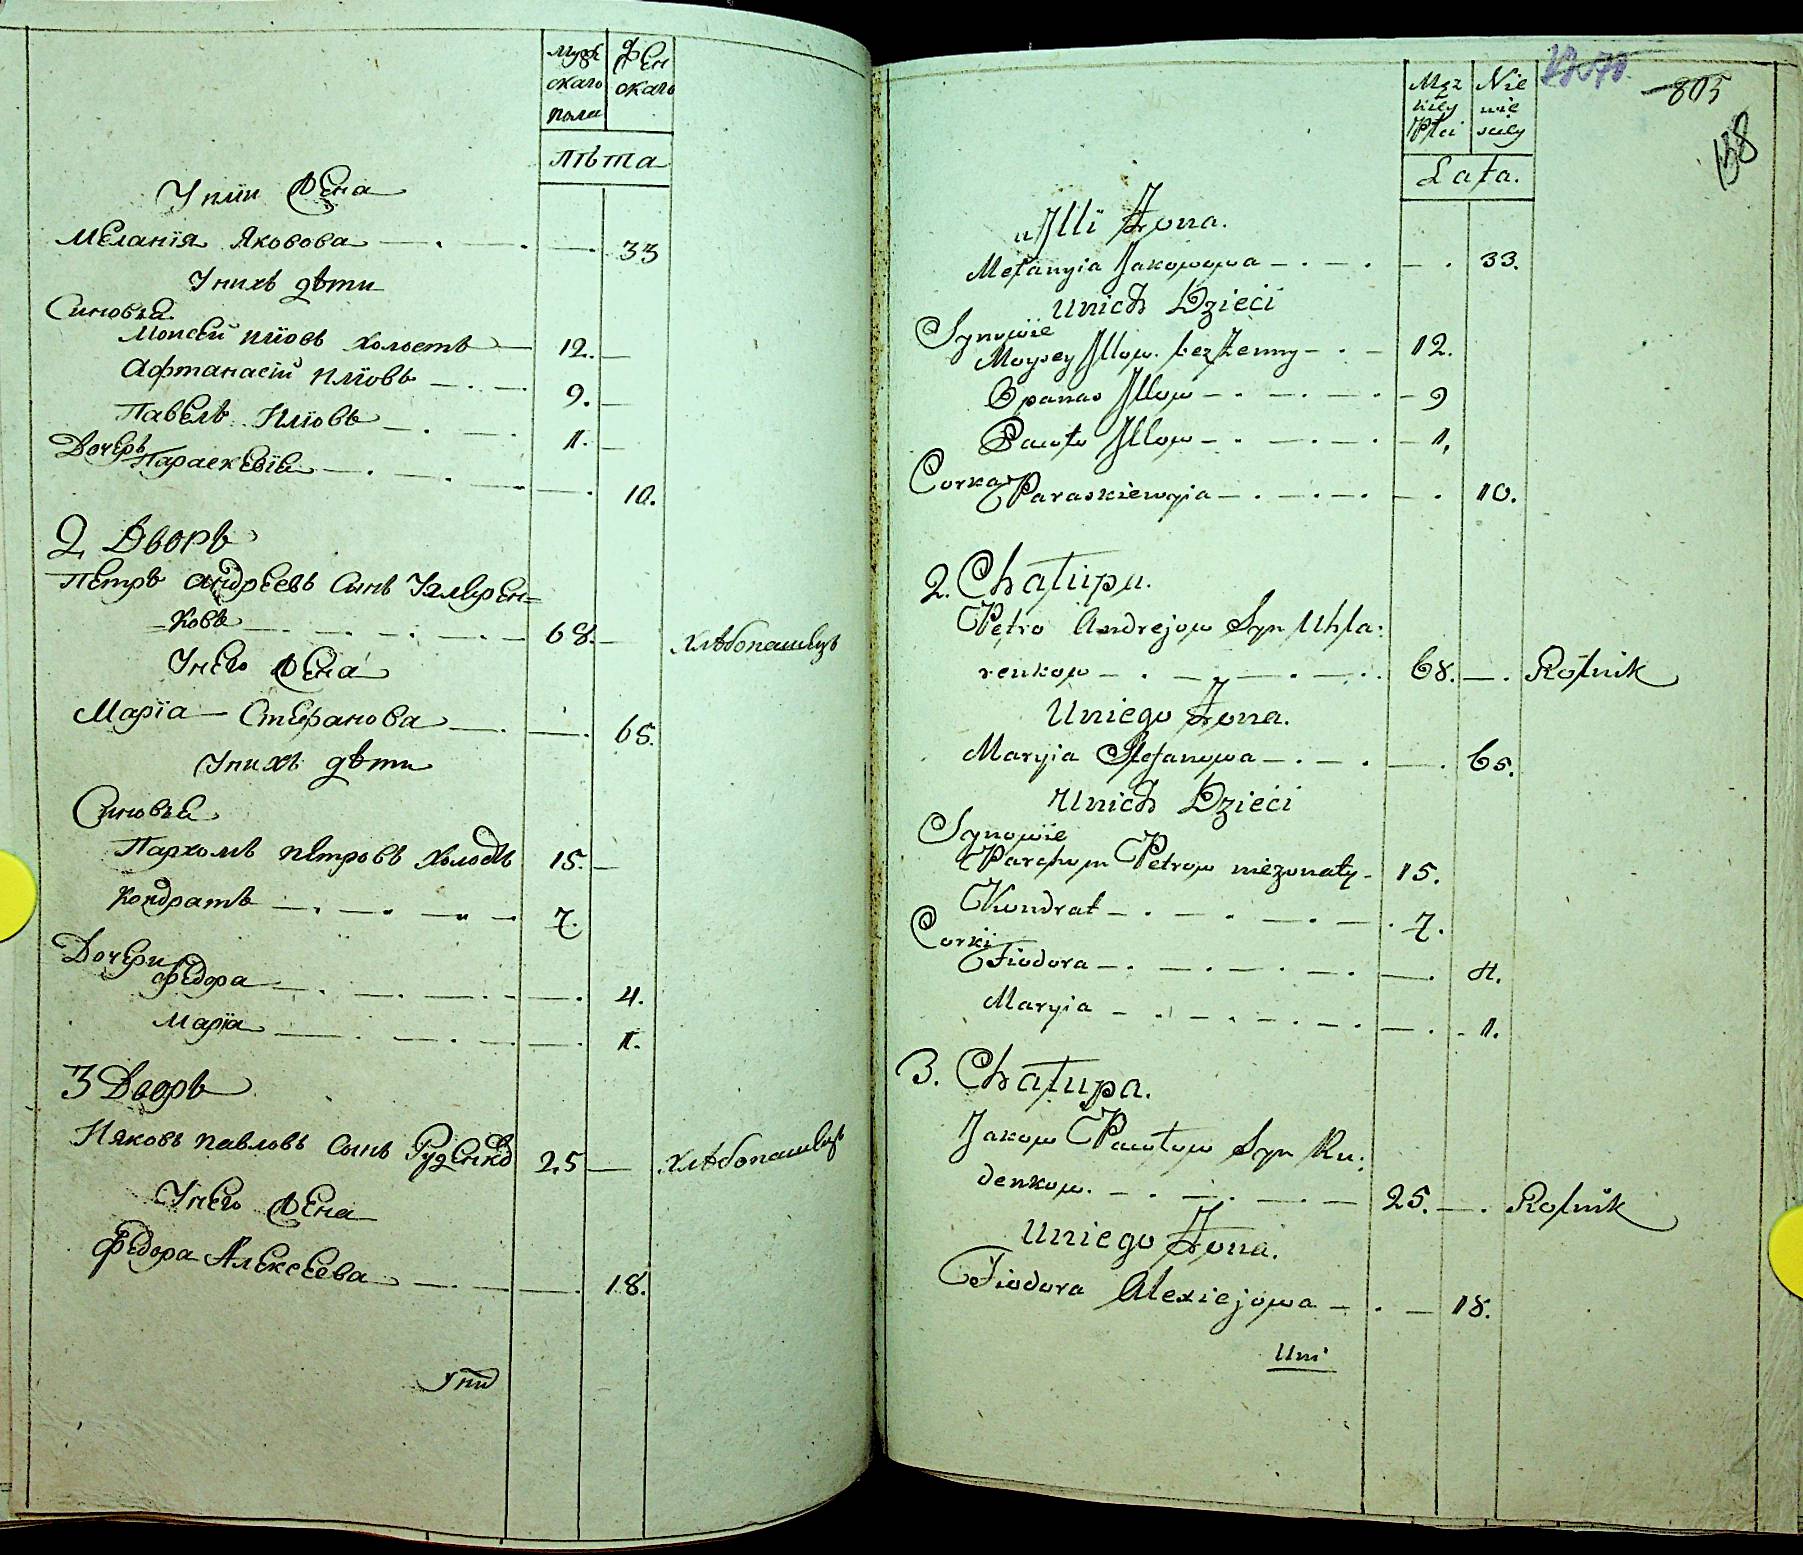 мужскаго пола
женскаго
лѣта
У Илїи Жена
Меланїя Яковова 33
У нихъ дѣти
Синовья
Моисей Илїовъ холостъ 12.
Афтанасїй Илїовъ 9.
Павелъ Илїовъ 1.
Дочерь
Параскевїя 10.
2 Дворъ
Петръ Андреевъ Синъ Углярен=
ковъ 68. хлѣбопашецъ
У него Жена
Марїа Стефанова 65.
У нихъ дѣти
Синовья
Пархомъ Петровъ холостъ 15.
Кондратъ 7.
Дочери
Федора 4.
Марїа 1.
3 Дворъ
Ияковъ Павловъ Сынъ Руденковъ 25 хлѣбопашецъ
У него Жена
Федора Алексеева 18.
У ни
805
138
Męzkiey Płci
Niewiesciey
Lata.
u Illi Żona.
Mełanyia Jakowowa 33.
u nich Dzieci
Synowie
Moysey Illow. bezżenny 12.
Opanas Illow 9
Pawło Illow 1,
Corka
Paraskiewyia 10.
2. Chałupa.
Petro Andrejow Syn Uhla:
renkow 68. Rolnik
U niego Żona.
Maryia Stefanowa 65.
U nich Dzieci
Synowie
Parchom Petrow niezonaty 15.
Kondrat 7.
Corki
Fiodora 4.
Maryia 1.
3. Chałupa.
Jakow Pawłow Syn Ru:
denkow. 25. Rolnik
U niego Żona.
Fiodora Alexiejowa 18.
U ni